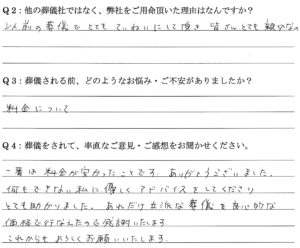 Q2：他の葬儀社ではなく、弊社をご用命頂いた理由はなんですか？
以前の葬儀でとてもていねいにして頂き 皆さんとても親切なの
Q3：葬儀される前、どのようなお悩み・ご不安がありましたか？
料金について
Q4：葬儀をされて、率直なご意見・ご感想をお聞かせください。
一番は料金が安かったことです。ありがとうございました。
何もできない私に優しくアドバイスをしてくださり
とても助かりました。あれだけ立派な葬儀を良心的な
価格で行なえたのも感謝いたします。
これからもよろしくお願いいたします。